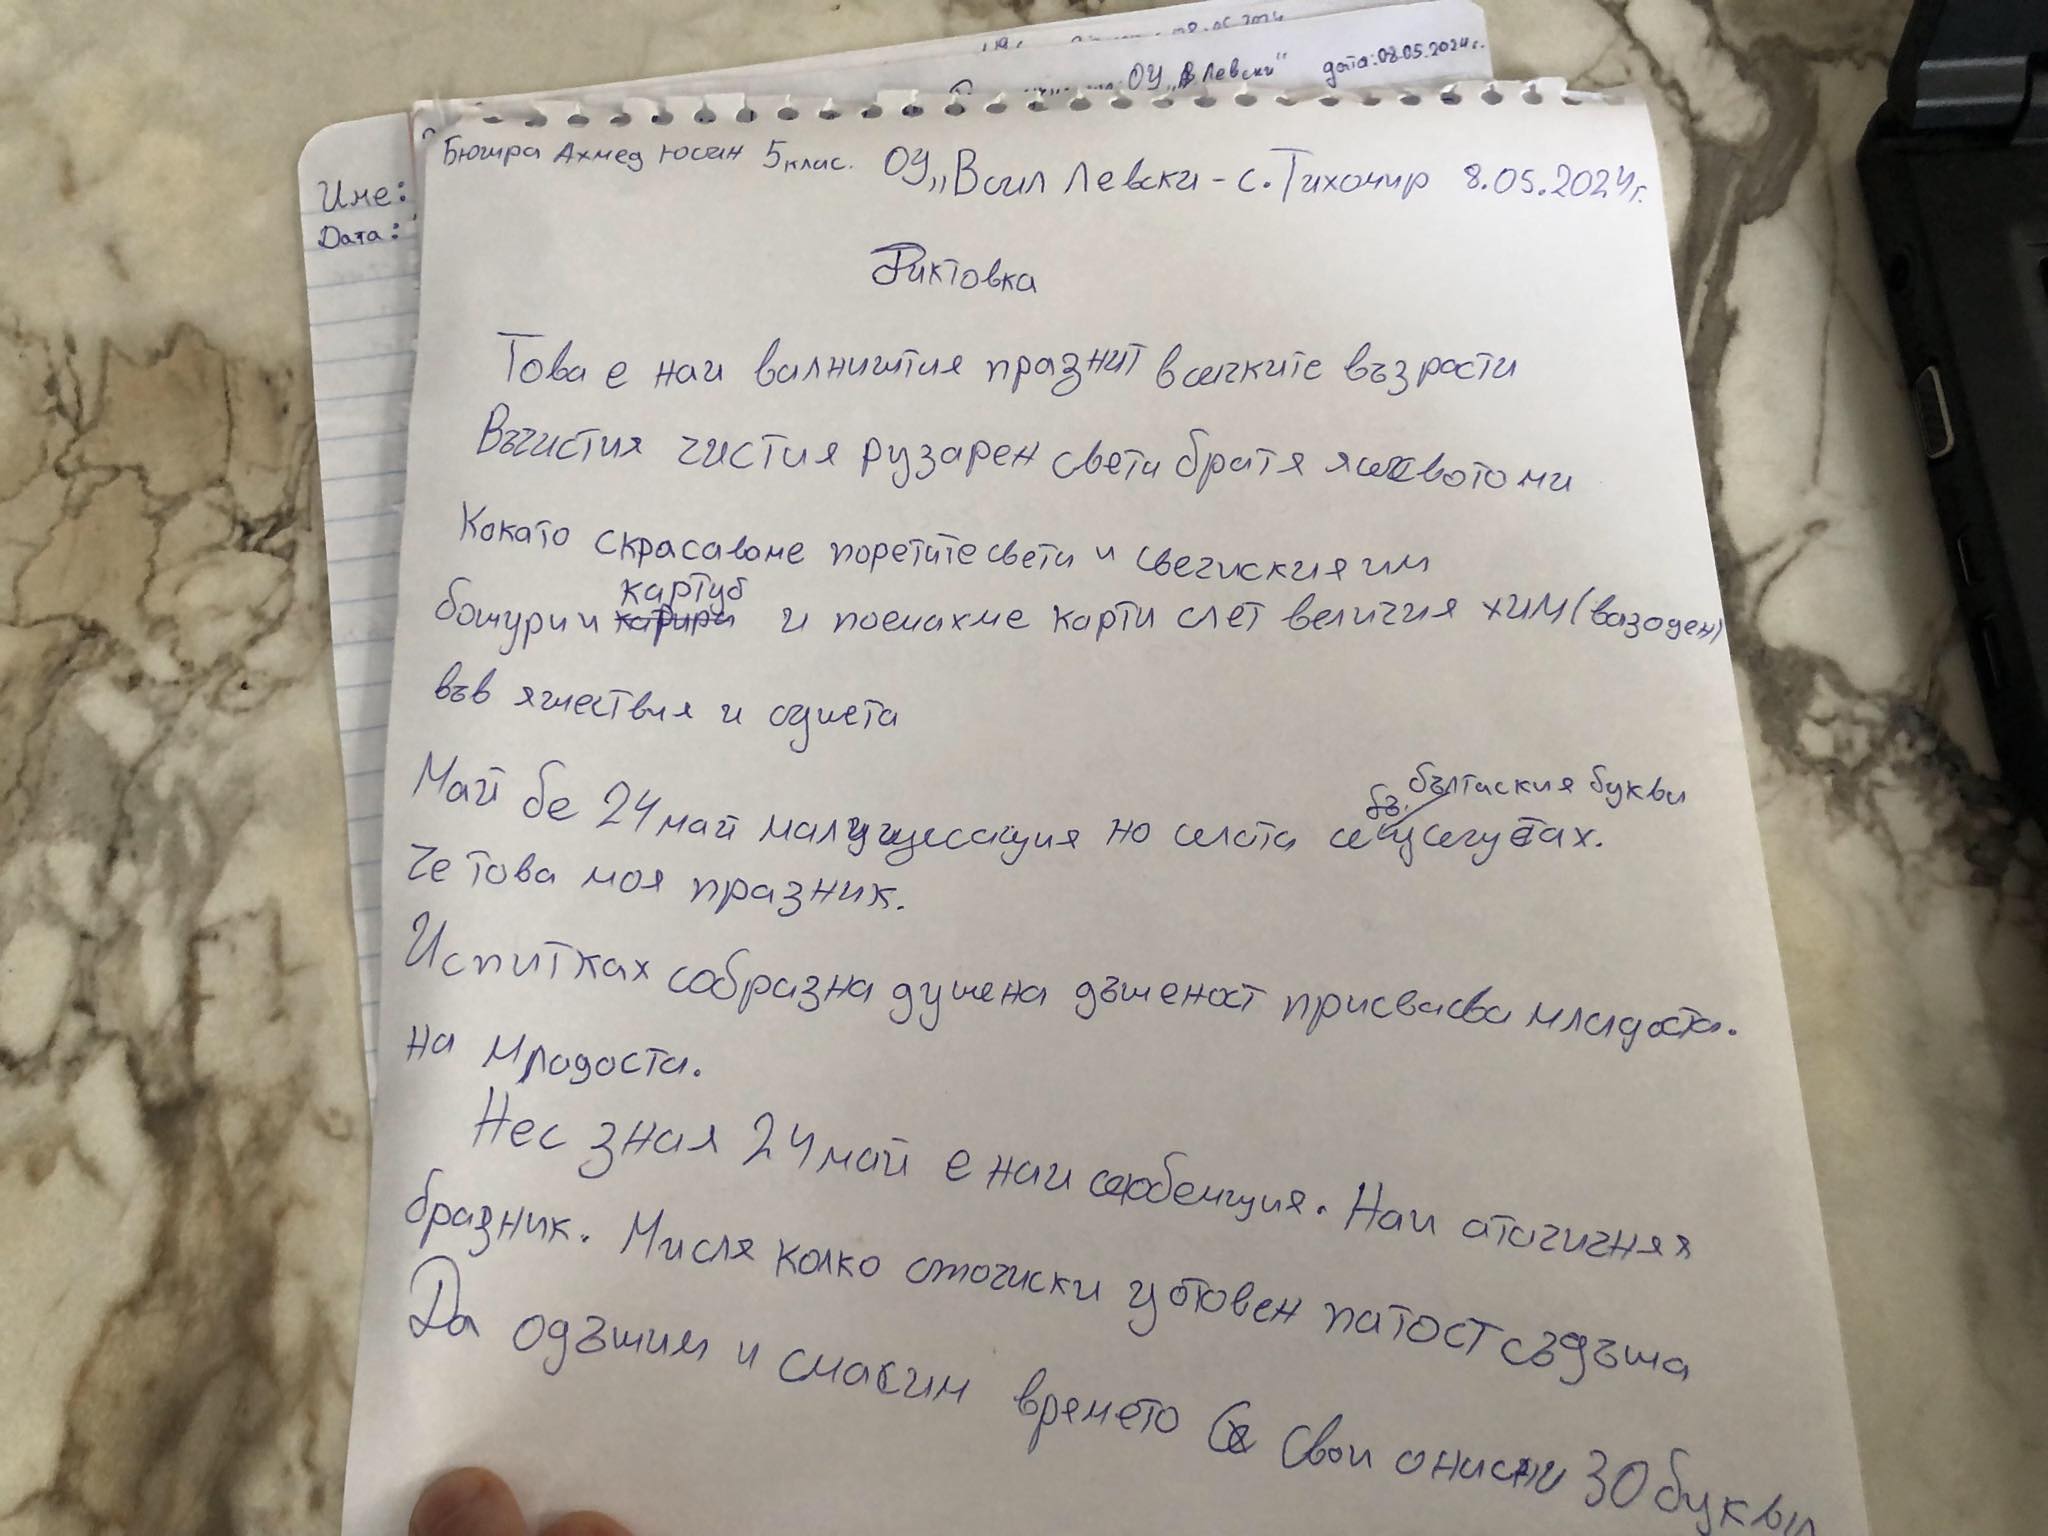 ОУ „В Левски" дата: 08.05.2024г.
Име:
Дата:
Бюшра Ахмед Юсеин 5 клас. ОУ „Всил Левски - с. Тихомир 8.05.2024г.
Диктовка
Това е наи валништия празнит всичките възрасти
Въчистия чистия рузарен свети братя
Кокато скрасаваме поретите свети и свегиския им
картуб
бошури и и поемахме карти слет величия хим (вазоден)
във яшествия и одшета
българския букви
Май бе 24 май но селата
Че това моя празник.
Испитках собразна душена дъшеност присваева младоста.
на младоста.
Нес зная 24 май е наи особенщия. Наи атогичняя
бразник. Мисля колко отогиски уотовен патост съдъша
Да одъшим и смасим времето Се свои описни 30 букви